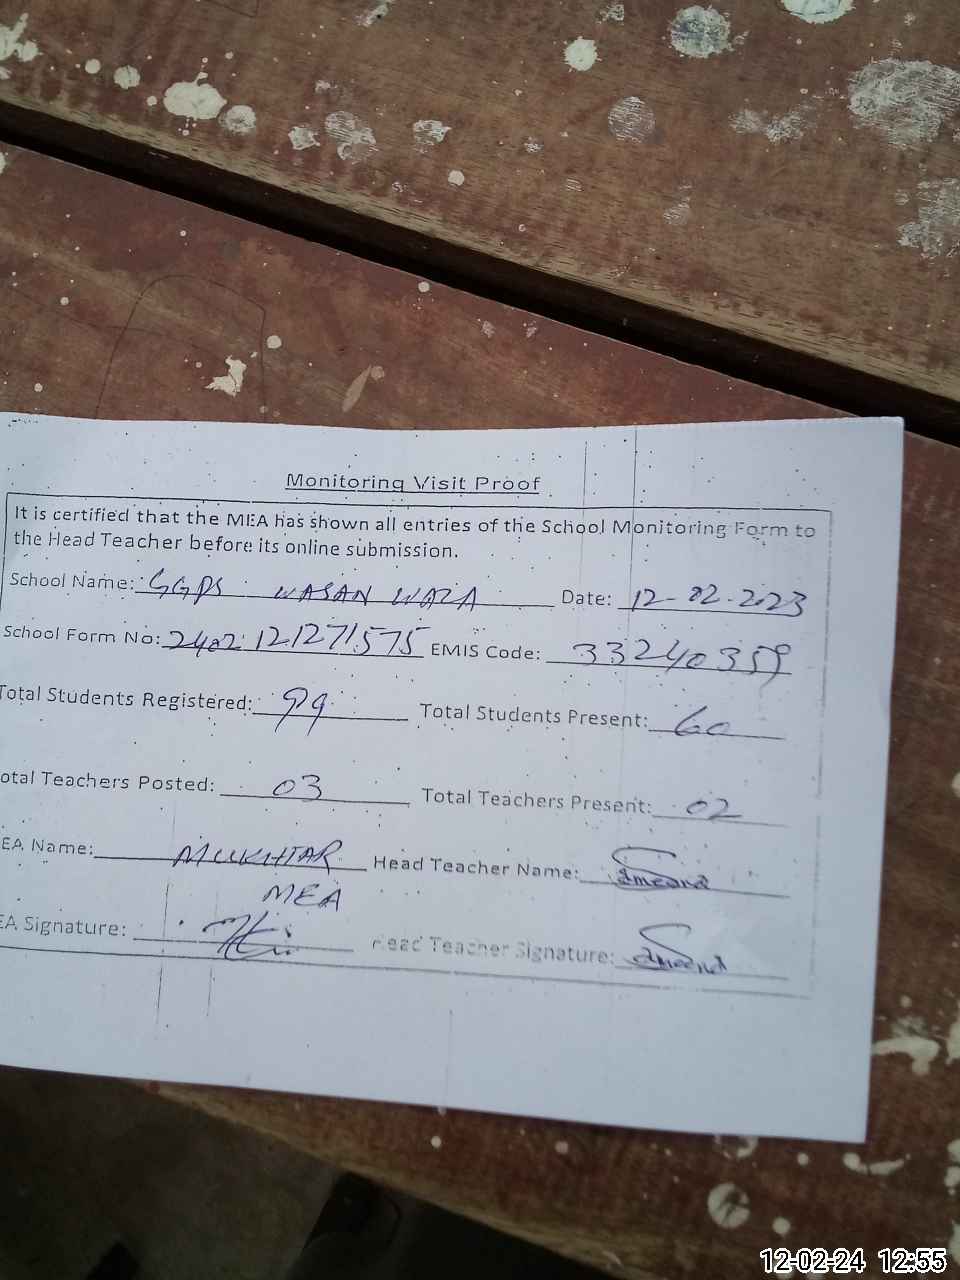 Monitoring Visit Proof
It is certified that the MEA has shown all entries of the School Monitoring Form to
the Head Teacher before its online submission.
School Name: GGPS WASAN WAZA Date: 12-02-2023
School Form No: 2402121271575 EMIS Code: 33240359
Total Students Registered: 99 Total Students Present: 60
otal Teachers Posted: 03 Total Teachers Present: 02
EA Name: MUKHTAR Head Teacher Name:
MEA
EA Signature: Head Teacher Signature:
12-02-24 12:55